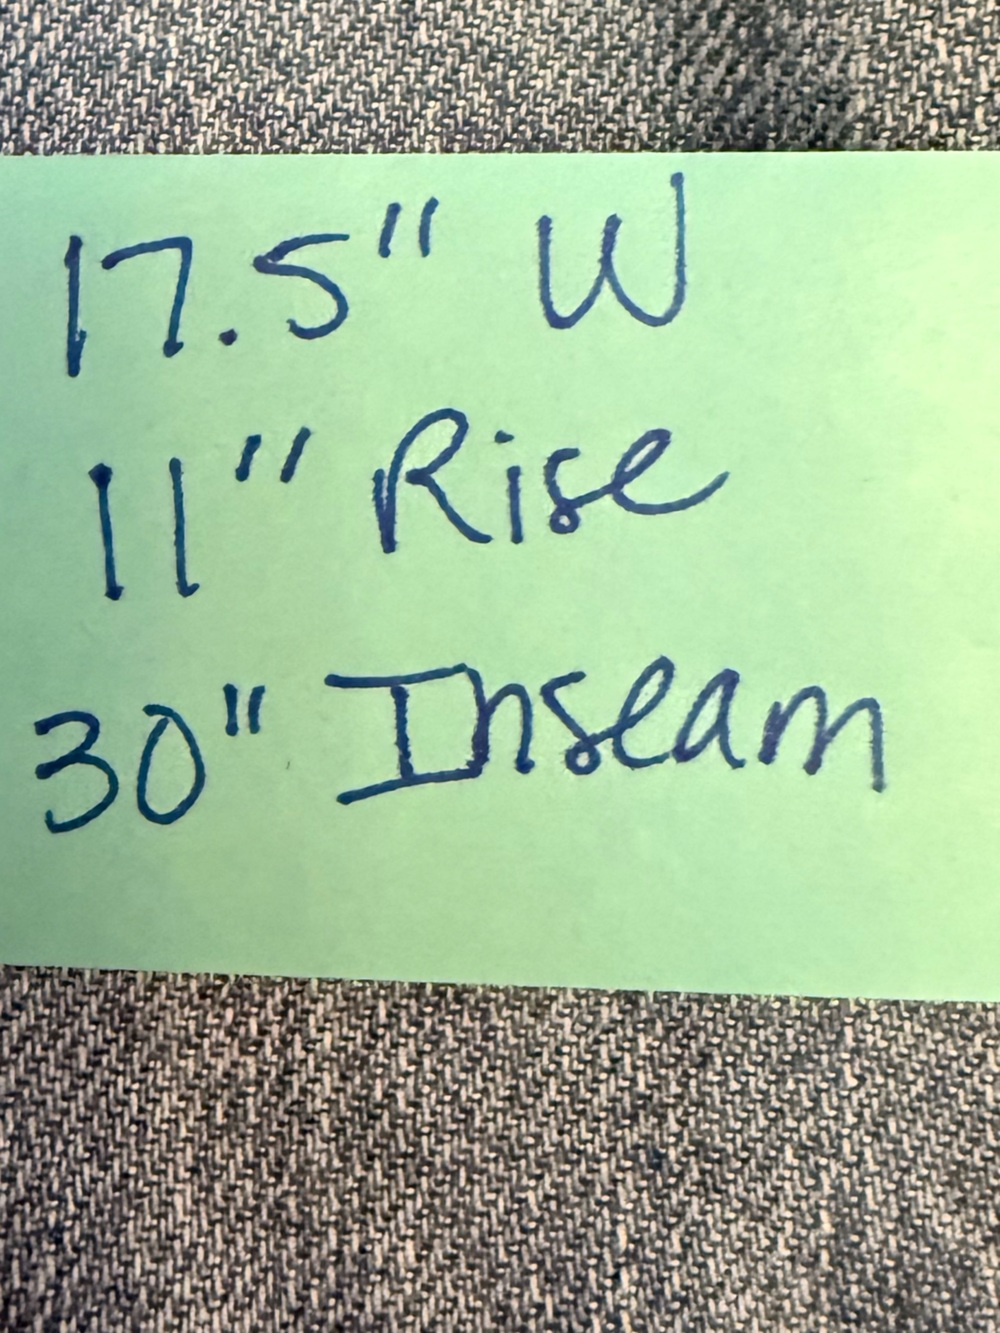 17.5" W
11" Rise
30" Inseam